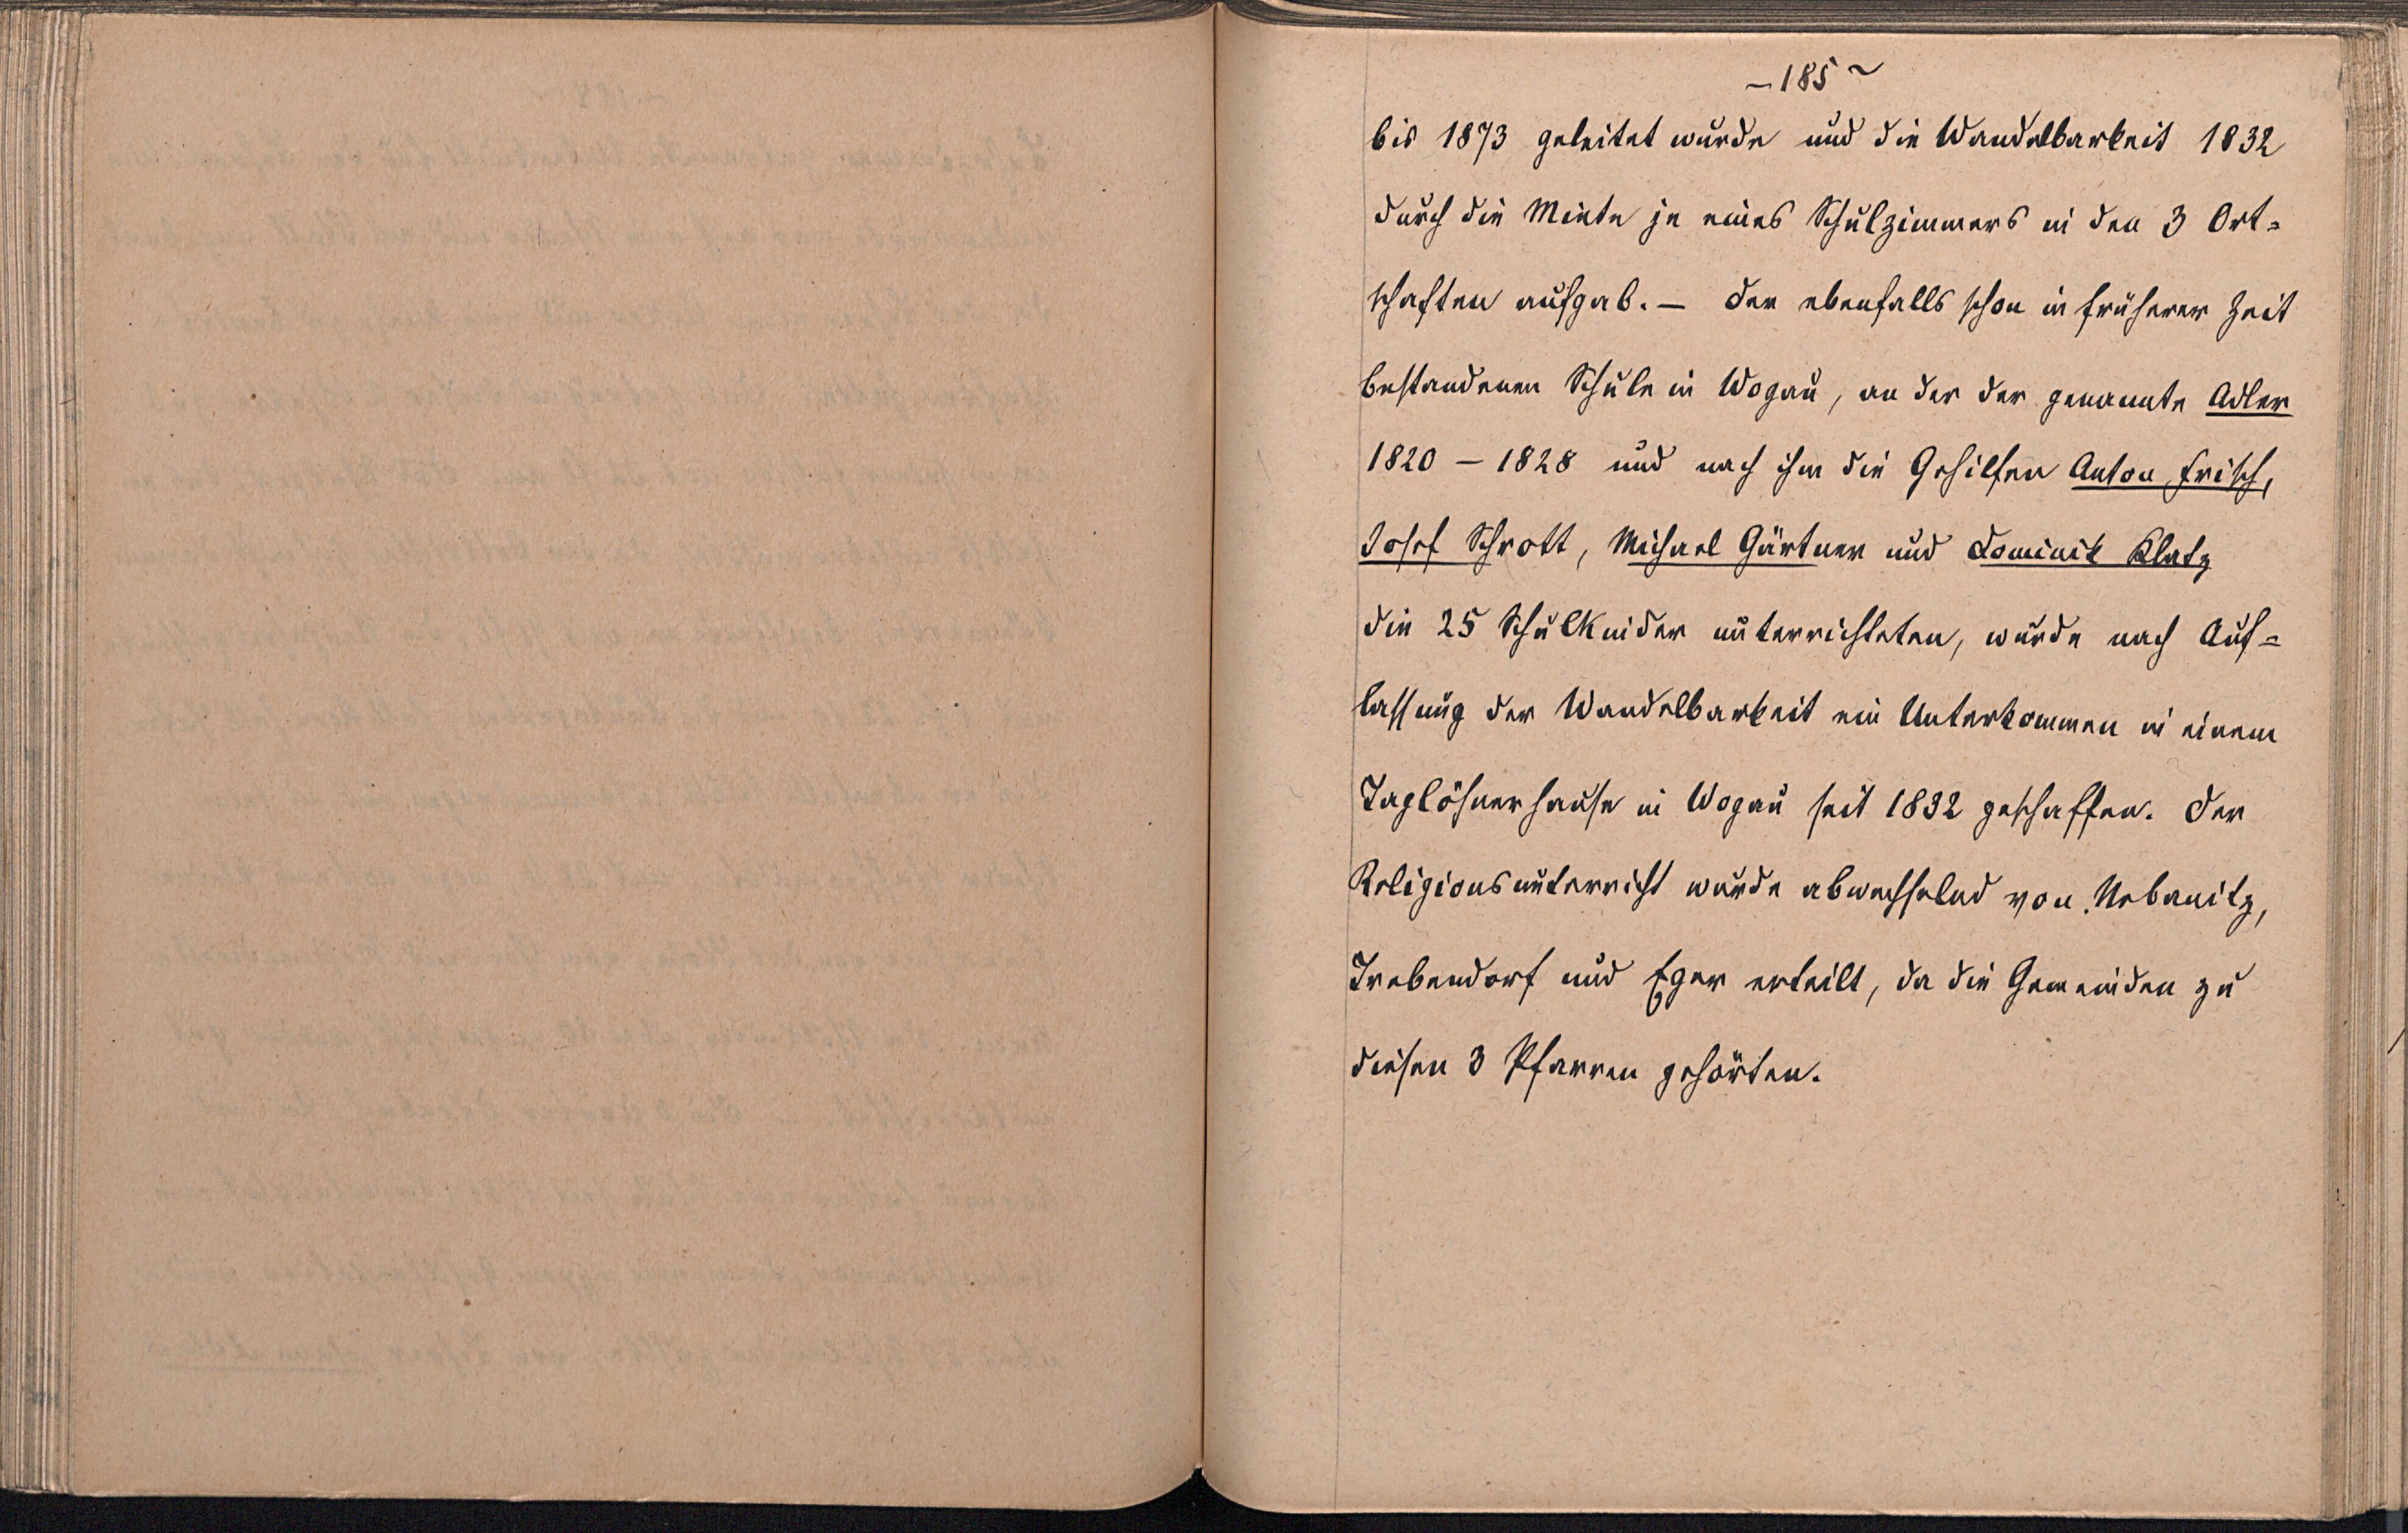 – 185 ~
bis 1873 geleitet wurde und die Wandelbarkeit 1832
durch die Miete je eines Schulzimmers in den 3 Ort=
schaften aufgab. – Der ebenfalls schon in früherer Zeit
bestandenen Schule in Wogau, an der der genannte Adler
1820 – 1828 und nach ihm die Gehilfen Anton Frisch,
Josef Schrott, Michael Gärtner und Dominik Klatz
die 25 Schulkinder unterrichteten, wurde nach Auf=
lassung der Wandelbarkeit ein Unterkommen in einem
Taglöhnerhause in Wogau seit 1832 geschaffen. Der
Religionsunterricht wurde abwechselnd von Nebanitz,
Trebendorf und Eger erteilt, da die Gemeinden zu
diesen 3 Pfarren gehörten.